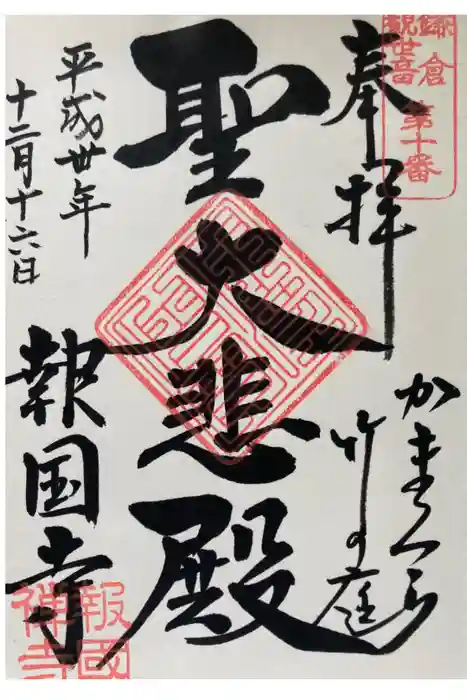 鎌倉
観世音
第十番
奉拝
かまくら
竹の庭
聖大悲殿
平成卅年
十二月十六日
報国寺
報國
禅寺